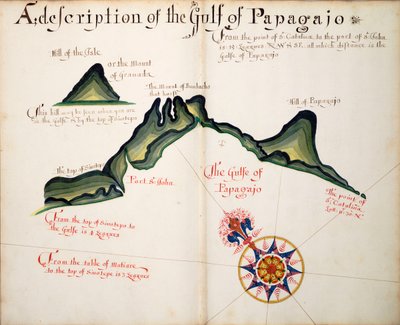 A description of the Gulf of Papagajo
From the point of St. Catalina to the port of St. John
is 19 Leagues N W S SE all which distance is the
Gulfe of Papagajo
Hill of the Isle
or the Mount
of Granada
The Mount of Bombacho
that burst
Hill of Papagajo
This hill may be seen when you are
in the Gulfe & by the top of Sinotepe
The top of Sinotepe
Port St. John
The Gulfe of
Papagajo
The point of
St. Catalina
From the top of Sinotepe to
the Gulfe is 4 Leagues
From the table of Matiare
to the top of Sinotepe is 5 Leagues